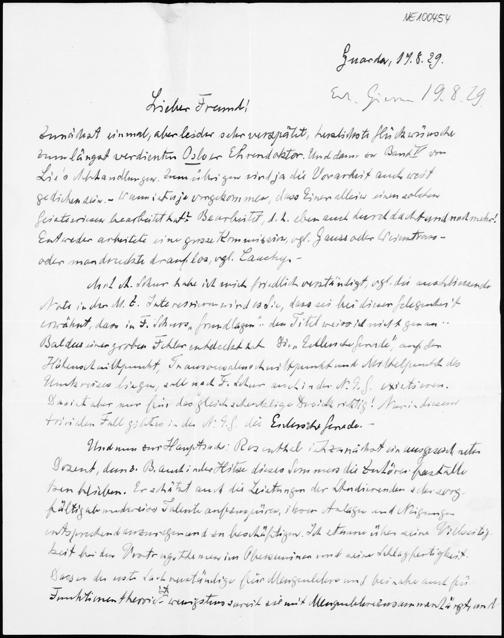 NE100454
Guarda, 19.8.29.
Erh. Giessen 19.8.29
Lieber Freund!
Zunächst einmal, aber leider sehr verspätet, herzlichste Glückwünsche
zum längst verdienten Osloer Ehrendoktor. Und dann zu Band V von
Lie's Abhandlungen. Im übrigen sind ja die Vorarbeit auch weit
gediehen. – Wann ist je vorgekommen, dass Einer allein einen solchen
Geistesriesen bearbeitet hat? Bearbeitet, d.h. eben auch durchdacht und noch mehr!
Entweder arbeitete eine grosse Kommission, vgl. Gauss oder Weierstrass –
oder man druckte drauf los, vgl. Cauchy. –
Mit A. Schur habe ich mich friedlich verständigt, vgl. die anschliessende
Note in der M. Z. Interessieren wird es Sie, dass sie bei dieser Gelegenheit
erwähnt, dass in F. Schurs "Grundlagen" den Titel weiss ich nicht genau –
Baldus einen groben Fehler entdeckt hat. Die "Eulersche Gerade", auf der
Höhenschnittpunkt, Transversalenschnittpunkt und Mittelpunkt des
Umkreises liegen, soll nach F. Schur auch in der N. E. G. existieren.
Das ist aber nur für das gleichschenklige Dreieck richtig! Nur in diesem
trivialen Fall gibt es in der N. E. G. die Eulersche Gerade. –
Und nun zur Hauptsache: Rosenthal ist zunächst ein ausgezeichneter
Dozent, dem z. B. auch in der Hitze dieses Sommers die Zuhörer
treu blieben. Er schätzt auch die Leistungen der Studierenden sehr sorg-
fältig ab und weiss Talente aufzuspüren, ihren Anlagen und Neigungen
entsprechend anzuregen und zu beschäftigen. Ich staune über seine Vielseitig-
keit bei den Vortragsthemen im Oberseminar und seine Schlagfertigkeit.
Dass er der erste Sachverständige für Mengenlehre und beinahe auch für
Funktionentheorie ist – wenigstens soweit sie mit Mengenlehre zusammenhängt, und